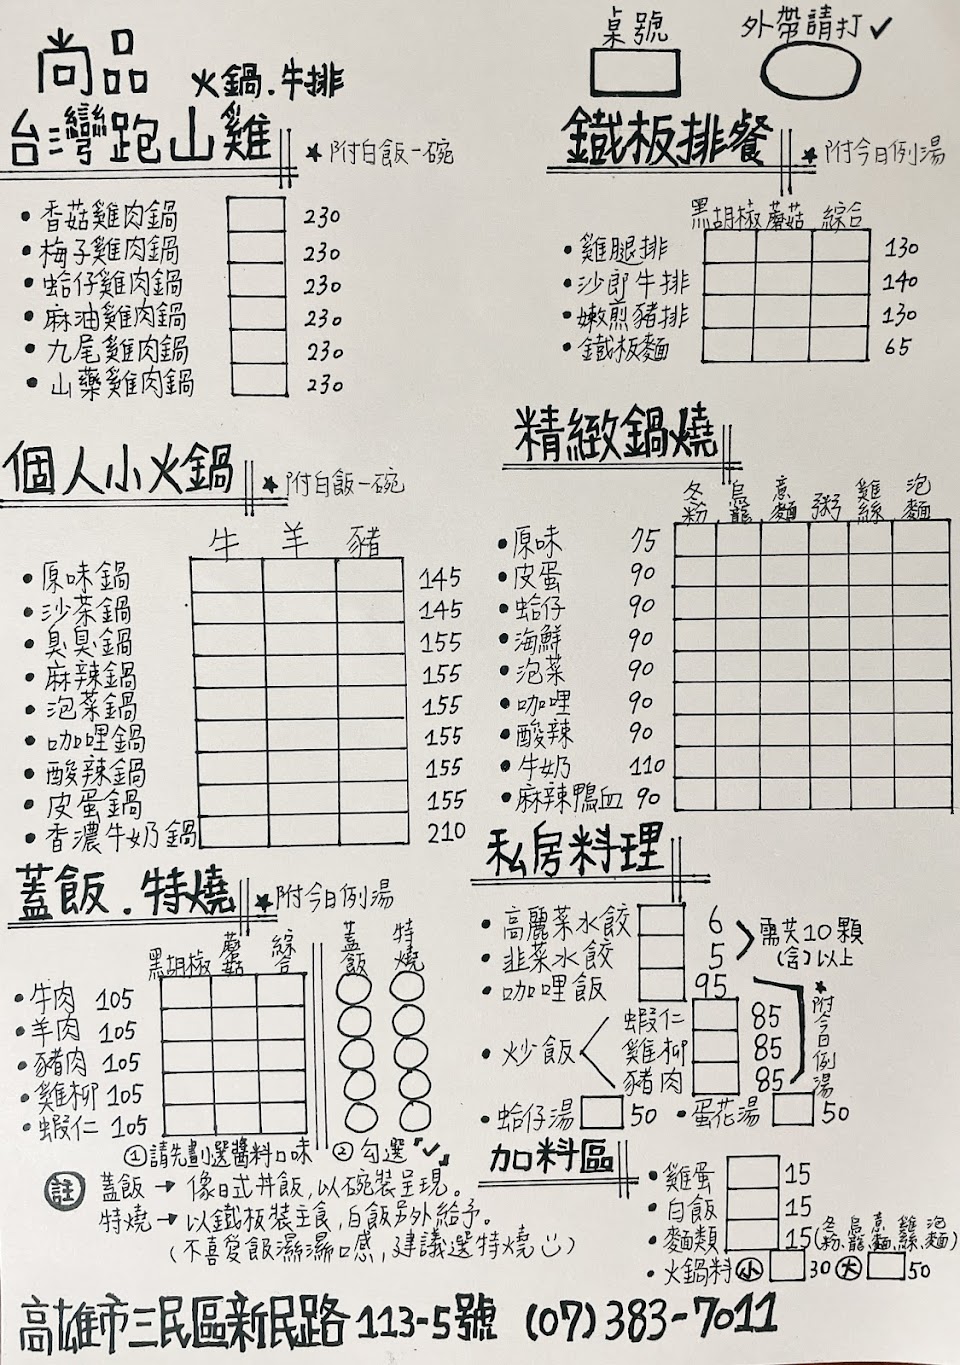 尚品 火鍋.牛排
桌號
外帶請打✓
台灣跑山雞 ★附白飯一碗
•香菇雞肉鍋 230
•梅子雞肉鍋 230
•蛤仔雞肉鍋 230
•麻油雞肉鍋 230
•九尾雞肉鍋 230
•山藥雞肉鍋 230
鐵板排餐 ★附今日例湯
黑胡椒 蘑菇 綜合
•雞腿排 130
•沙郎牛排 140
•嫩煎豬排 130
•鐵板麵 65
個人小火鍋 ★附白飯一碗
牛 羊 豬
•原味鍋 145
•沙茶鍋 145
•臭臭鍋 155
•麻辣鍋 155
•泡菜鍋 155
•咖哩鍋 155
•酸辣鍋 155
•皮蛋鍋 155
•香濃牛奶鍋 210
精緻鍋燒
冬粉 烏龍 意麵 粥 雞絲 泡麵
•原味 75
•皮蛋 90
•蛤仔 90
•海鮮 90
•泡菜 90
•咖哩 90
•酸辣 90
•牛奶 110
•麻辣鴨血 90
蓋飯.特燒 ★附今日例湯
黑胡椒 蘑菇 綜合 蓋飯 特燒
•牛肉 105
•羊肉 105
•豬肉 105
•雞柳 105
•蝦仁 105
①請先劃選醬料口味 ②勾選「✓」
註 蓋飯→像日式丼飯,以碗裝呈現。
特燒→以鐵板裝主食,白飯另外給予。
(不喜愛飯濕濕口感,建議選特燒)
私房料理
•高麗菜水餃 6
•韭菜水餃 5
需共10顆
(含)以上
•咖哩飯 95
•炒飯 蝦仁 85
雞柳 85
豬肉 85
★附今日例湯
•蛤仔湯 50 •蛋花湯 50
加料區
•雞蛋 15
•白飯 15
•麵類 15(冬粉、烏龍、意麵、雞絲、泡麵)
•火鍋料 小 30 大 50
高雄市三民區新民路113-5號 (07)383-7011